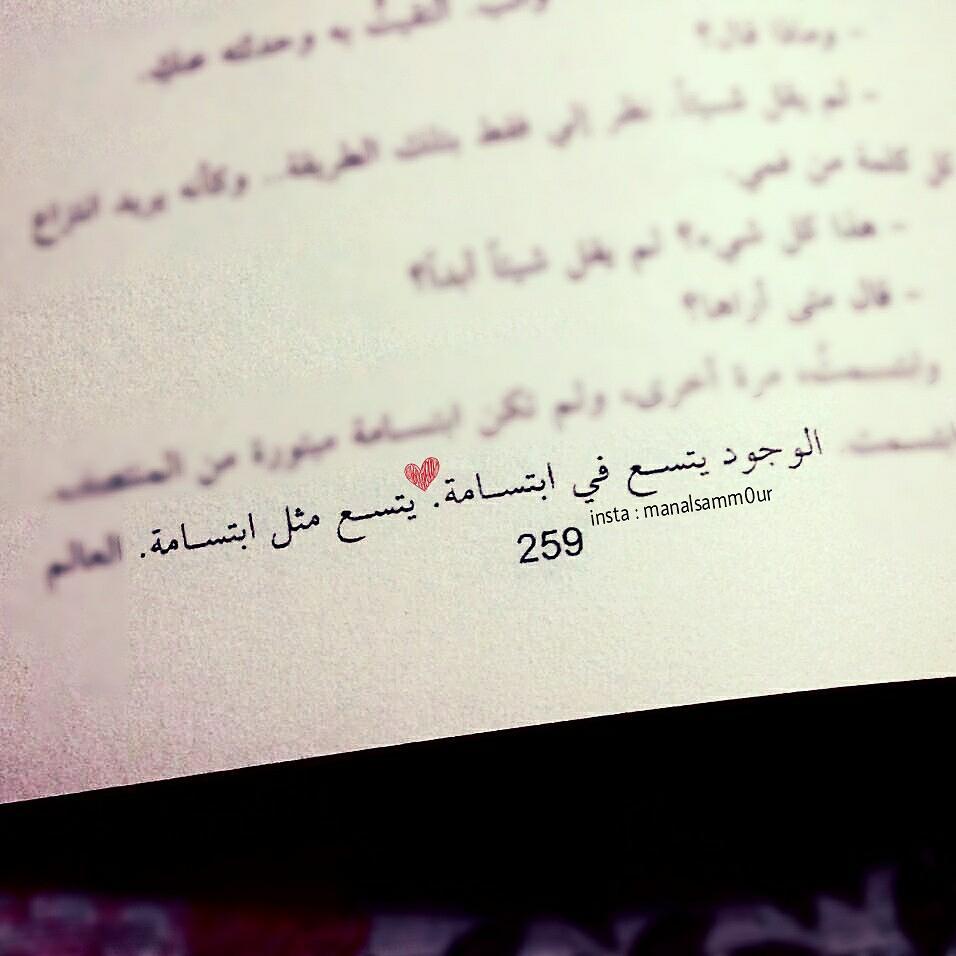 به وحدثته عنك.
- وماذا قال؟
- لم يقل شيئاً. نظر إلي فقط بتلك الطريقة.. وكأنه يريد انتزاع
كل كلمة من فمي.
- هذا كل شيء؟ لم يقل شيئاً أبداً؟
- قال متى أراها؟
وابتسمتُ، مرة أخرى، ولم تكن ابتسامة مبتورة من المنتصف.
ابتسمت. الوجود يتسع في ابتسامة. يتسع مثل ابتسامة. العالم
insta : manalsamm0ur
259